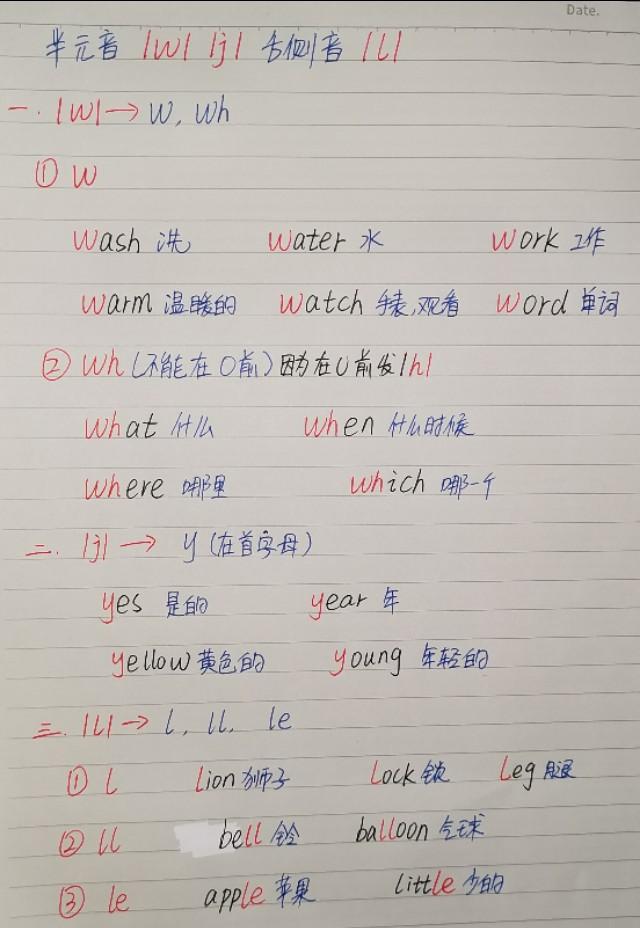 Date.
半元音 /w/ /j/ 舌侧音 /l/
一. /w/→ w, wh
① w
wash 洗 water 水 work 工作
warm 温暖的 watch 手表,观看 word 单词
② wh (不能在o前) 因为在o前发/h/
what 什么 when 什么时候
where 哪里 which 哪一个
二. /j/ → y (在首字母)
yes 是的 year 年
yellow 黄色的 young 年轻的
三. /l/→ l, ll, le
① l lion 狮子 lock 锁 leg 腿
② ll bell 铃 balloon 气球
③ le apple 苹果 little 少的